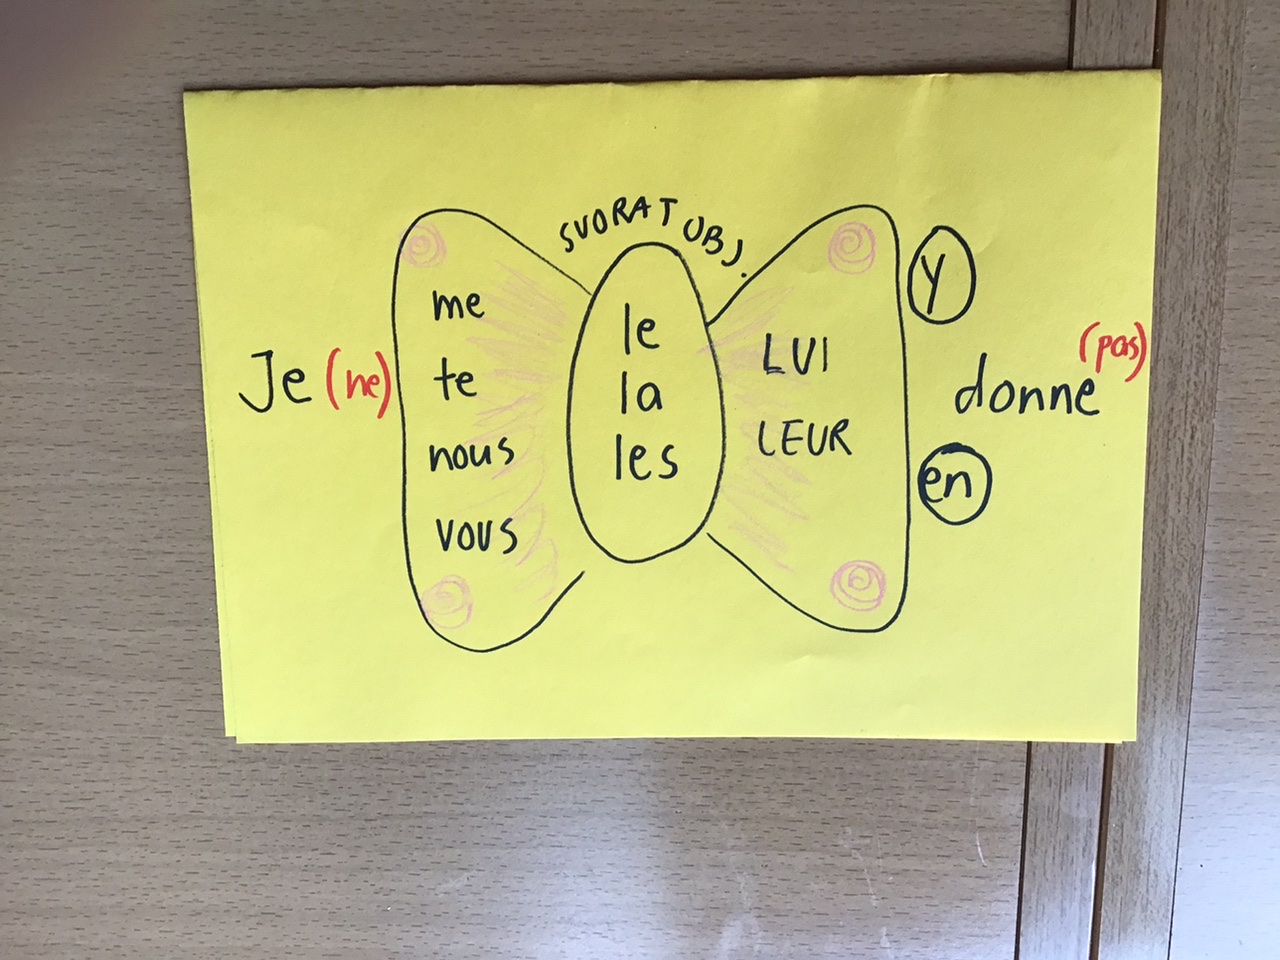 SUORAT OBJ.
Je (ne)
me
te
nous
vous
le
la
les
LUI
LEUR
y
en
donne (pas)